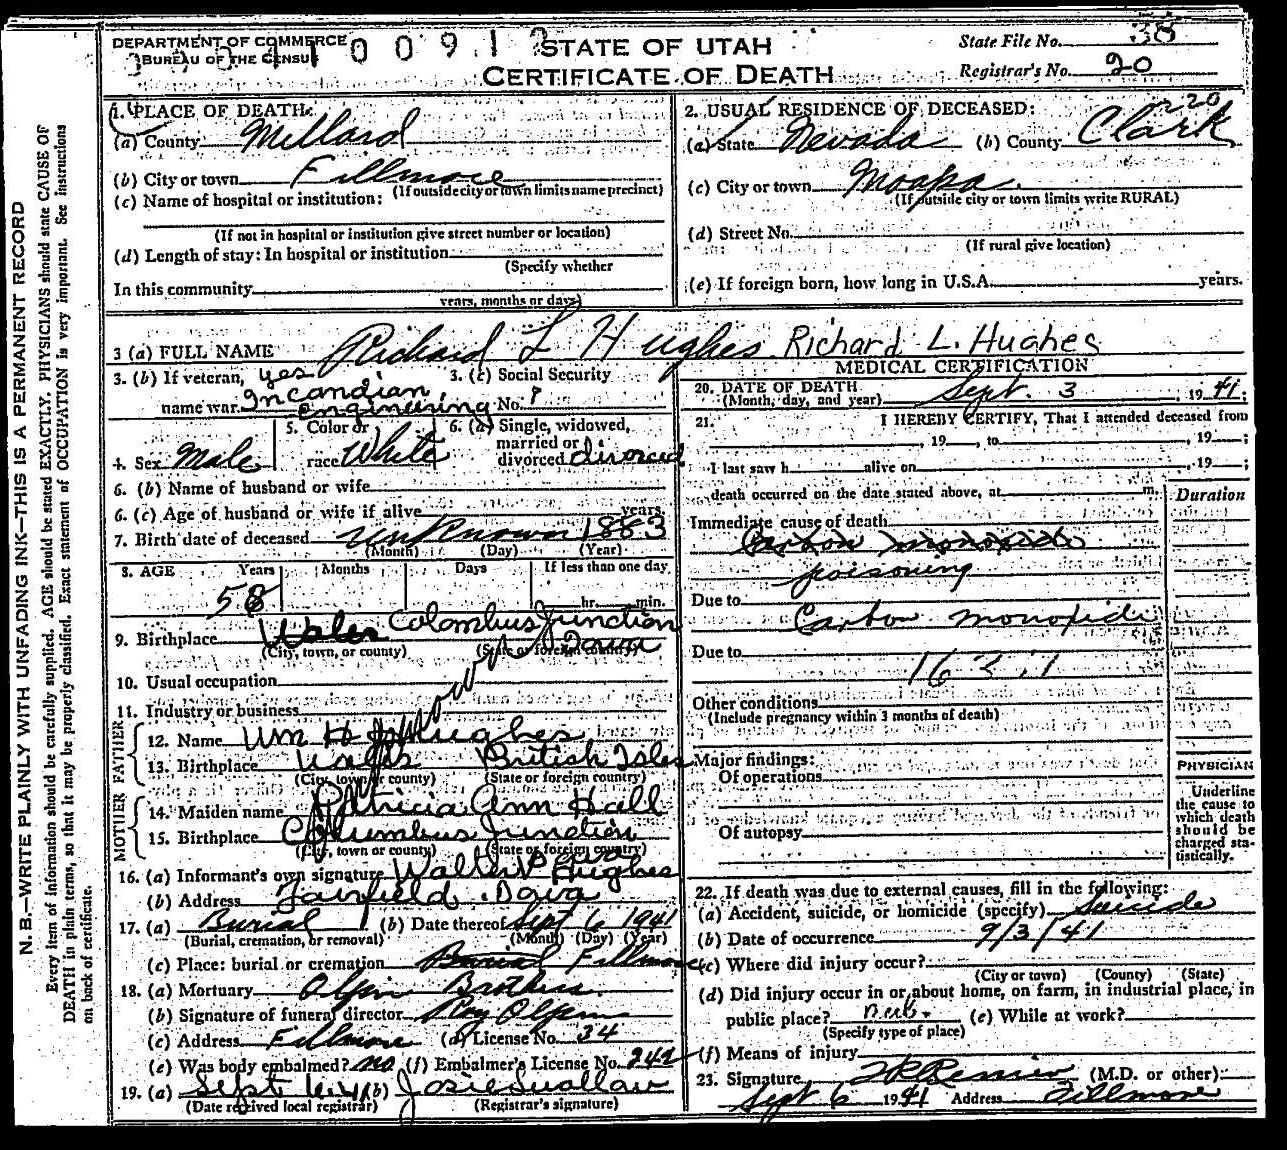 DEPARTMENT OF COMMERCE
BUREAU OF THE CENSUS
STATE OF UTAH
CERTIFICATE OF DEATH
State File No. 38
Registrar's No. 20
1. PLACE OF DEATH:
(a) County Millard
(b) City or town Fillmore
(If outside city or town limits name precinct)
(c) Name of hospital or institution:
(If not in hospital or institution give street number or location)
(d) Length of stay: In hospital or institution
(Specify whether
In this community
years, months or days)
2. USUAL RESIDENCE OF DECEASED:
(a) State Nevada (b) County Clark
(c) City or town Moapa
(If outside city or town limits write RURAL)
(d) Street No.
(If rural give location)
(e) If foreign born, how long in U.S.A. years.
3 (a) FULL NAME Richard L Hughes Richard L. Hughes
3. (b) If veteran, yes
name war. In canadian engineering
3. (c) Social Security
No. ?
4. Sex Male
5. Color or race White
6. (a) Single, widowed, married or divorced divorced
6. (b) Name of husband or wife
6. (c) Age of husband or wife if alive years
7. Birth date of deceased unknown 1883
(Month) (Day) (Year)
8. AGE Years Months Days If less than one day
58 hr. min.
9. Birthplace Wales Colombus Junction Iowa
(City, town, or county) (State or foreign country)
10. Usual occupation unknown
11. Industry or business
FATHER
12. Name Wm H Hughes
13. Birthplace Wales British Isles
(City, town or county) (State or foreign country)
MOTHER
14. Maiden name Patricia Ann Hall
15. Birthplace Columbus Junction Iowa
(City, town or county) (State or foreign country)
16. (a) Informant's own signature Walter Hughes
(b) Address Fairfield, Iowa
17. (a) Burial (b) Date thereof Sept 6 1941
(Burial, cremation, or removal) (Month) (Day) (Year)
(c) Place: burial or cremation Burial Fillmore
18. (a) Mortuary Olpin Brothers
(b) Signature of funeral director Roy Olpin
(c) Address Fillmore (d) License No. 34
(e) Was body embalmed? no (f) Embalmer's License No. 242
19. (a) Sept 6, 41 (b) Josie Swallow
(Date received local registrar) (Registrar's signature)
MEDICAL CERTIFICATION
20. DATE OF DEATH
(Month, day, and year) Sept. 3, 1941;
21. I HEREBY CERTIFY, That I attended deceased from
, 19 , to , 19 ;
I last saw h alive on , 19 ;
death occurred on the date stated above, at m.
Duration
Immediate cause of death
Carbon monoxide
poisoning
Due to Carbon monoxide
Due to
163.1
Other conditions
(Include pregnancy within 3 months of death)
Major findings:
Of operations
Of autopsy
PHYSICIAN
Underline
the cause to
which death
should be
charged sta-
tistically.
22. If death was due to external causes, fill in the following:
(a) Accident, suicide, or homicide (specify) Suicide
(b) Date of occurrence 9/3/41
(c) Where did injury occur?
(City or town) (County) (State)
(d) Did injury occur in or about home, on farm, in industrial place, in
public place? (e) While at work?
(Specify type of place)
(f) Means of injury
23. Signature (M.D. or other)
Sept 6 1941 Address Fillmore
N. B.—WRITE PLAINLY WITH UNFADING INK—THIS IS A PERMANENT RECORD
Every item of information should be carefully supplied. AGE should be stated EXACTLY. PHYSICIANS should state CAUSE OF
DEATH in plain terms, so that it may be properly classified. Exact statement of OCCUPATION is very important. See instructions
on back of certificate.